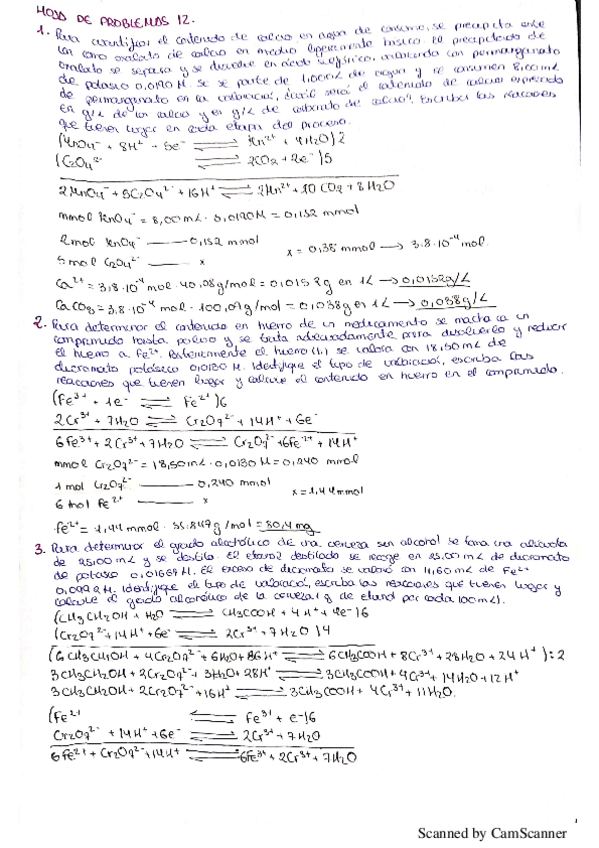 HOJA DE PROBLEMAS 12.
1. Para cuantificar el contenido de calcio en agua de consumo, se precipita este
con como oxalato de calcio en medio ligeramente básico. El precipitado de
oxalato se separa y se disuelve en ácido sulfúrico, valorando con permanganato
de potasio 0,0190 M. Se se parte de 1,000 mL de agua y se consumen 8,00 mL
de permanganato en la valoración, ¿cuál será el contenido de calcio expresado
en g/L de ion calcio y en g/L de carbonato de calcio? Escribir las reacciones
que tienen lugar en cada etapa del proceso.
(MnO4⁻ + 8H⁺ + 5e⁻ ⇌ Mn²⁺ + 4H2O)2
(C2O4²⁻ ⇌ 2CO2 + 2e⁻)5
2MnO4⁻ + 5C2O4²⁻ + 16H⁺ ⇌ 2Mn²⁺ + 10CO2 + 8H2O
mmol KnO4⁻ = 8,00 mL · 0,0190 M = 0,152 mmol
2 mol KnO4⁻ —— 0,152 mmol
5 mol C2O4²⁻ —— x x = 0,38 mmol → 3.8·10⁻⁴ mol.
Ca²⁺ = 3,8·10⁻⁴ mol · 40,08 g/mol = 0,0152 g en 1L → 0,0152 g/L
CaCO3 = 3,8·10⁻⁴ mol · 100,09 g/mol = 0,038 g en 1L → 0,038 g/L
2. Para determinar el contenido en hierro de un medicamento se machaca un
comprimido hasta polvo y se trata adecuadamente para disolverlo y reducir
el hierro a Fe²⁺. Posteriormente el hierro (II) se valora con 18,50 mL de
dicromato potásico 0,0130 M. Identifique el tipo de valoración, escriba las
reacciones que tienen lugar y calcule el contenido en hierro en el comprimido.
(Fe³⁺ + 1e⁻ ⇌ Fe²⁺)6
2Cr³⁺ + 7H2O ⇌ Cr2O7²⁻ + 14H⁺ + 6e⁻
6Fe³⁺ + 2Cr³⁺ + 7H2O ⇌ Cr2O7²⁻ + 6Fe²⁺ + 14H⁺
mmol Cr2O7²⁻ = 18,50 mL · 0,0130 M = 0,240 mmol
1 mol Cr2O7²⁻ —— 0,240 mmol
6 mol Fe²⁺ —— x x = 1,44 mmol
·Fe²⁺ = 1,44 mmol · 55.847 g/mol = 80,4 mg
3. Para determinar el grado alcohólico de una cerveza sin alcohol se toma una alícuota
de 25,00 mL y se destila. El etanol destilado se recoge en 25,00 mL de dicromato
de potasio 0,01667 M. El exceso de dicromato se valoró con 14,60 mL de Fe²⁺
M. Identifique el tipo de valoración, escriba las reacciones que tienen lugar y
calcule el grado alcohólico de la cerveza (g de etanol por cada 100 mL).
(CH3CH2OH + H2O ⇌ CH3COOH + 4H⁺ + 4e⁻)6
(Cr2O7²⁻ + 14H⁺ + 6e⁻ ⇌ 2Cr³⁺ + 7H2O)4
(6CH3CH2OH + 4Cr2O7²⁻ + 6H2O + 86H⁺ ⇌ 6CH3COOH + 8Cr³⁺ + 28H2O + 24H⁺):2
3CH3CH2OH + 2Cr2O7²⁻ + 3H2O + 28H⁺ ⇌ 3CH3COOH + 4Cr³⁺ + 14H2O + 12H⁺
3CH3CH2OH + 2Cr2O7²⁻ + 16H⁺ ⇌ 3CH3COOH + 4Cr³⁺ + 11H2O.
(Fe²⁺ ⇌ Fe³⁺ + e⁻)6
Cr2O7²⁻ + 14H⁺ + 6e⁻ ⇌ 2Cr³⁺ + 7H2O
6Fe²⁺ + Cr2O7²⁻ + 14H⁺ ⇌ 6Fe³⁺ + 2Cr³⁺ + 7H2O
Scanned by CamScanner